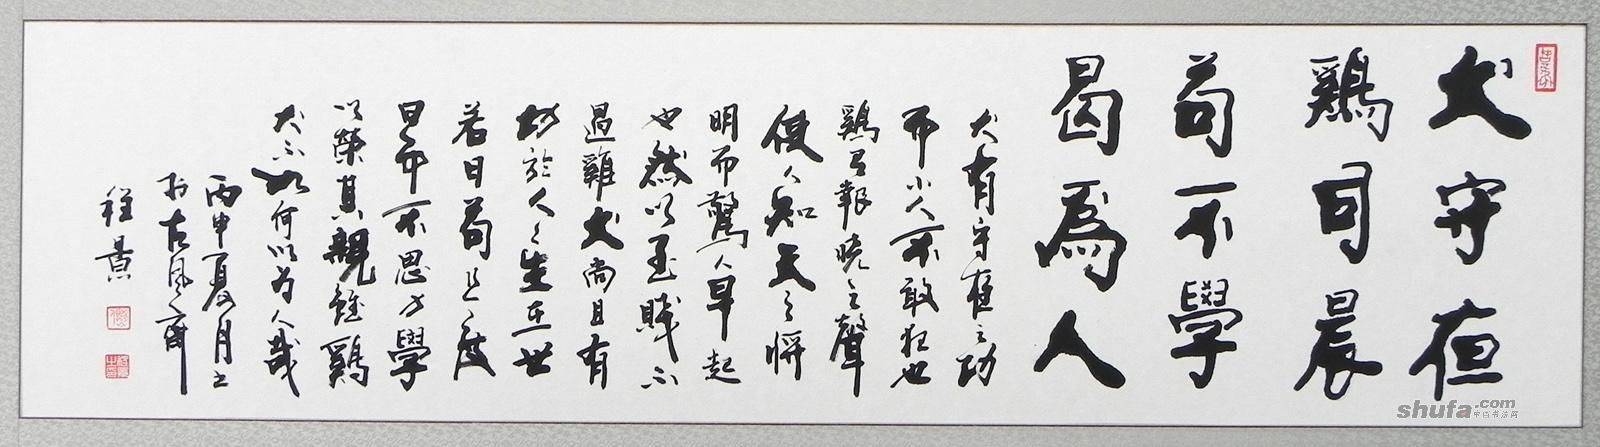 犬守夜
鷄司晨
苟不學
曷爲人
犬有守夜之功
而小人不敢狂也
鷄有報曉之聲
使人知天之將
明而驚人早起
也然以至賤不
過雞犬尚且有
功於人々生在世
若日苟且度
日而不思力學
以榮其親雖鷄
犬不如何以为人哉
丙申夏月书
於古風斋
程景
shufa.com
中国书法网